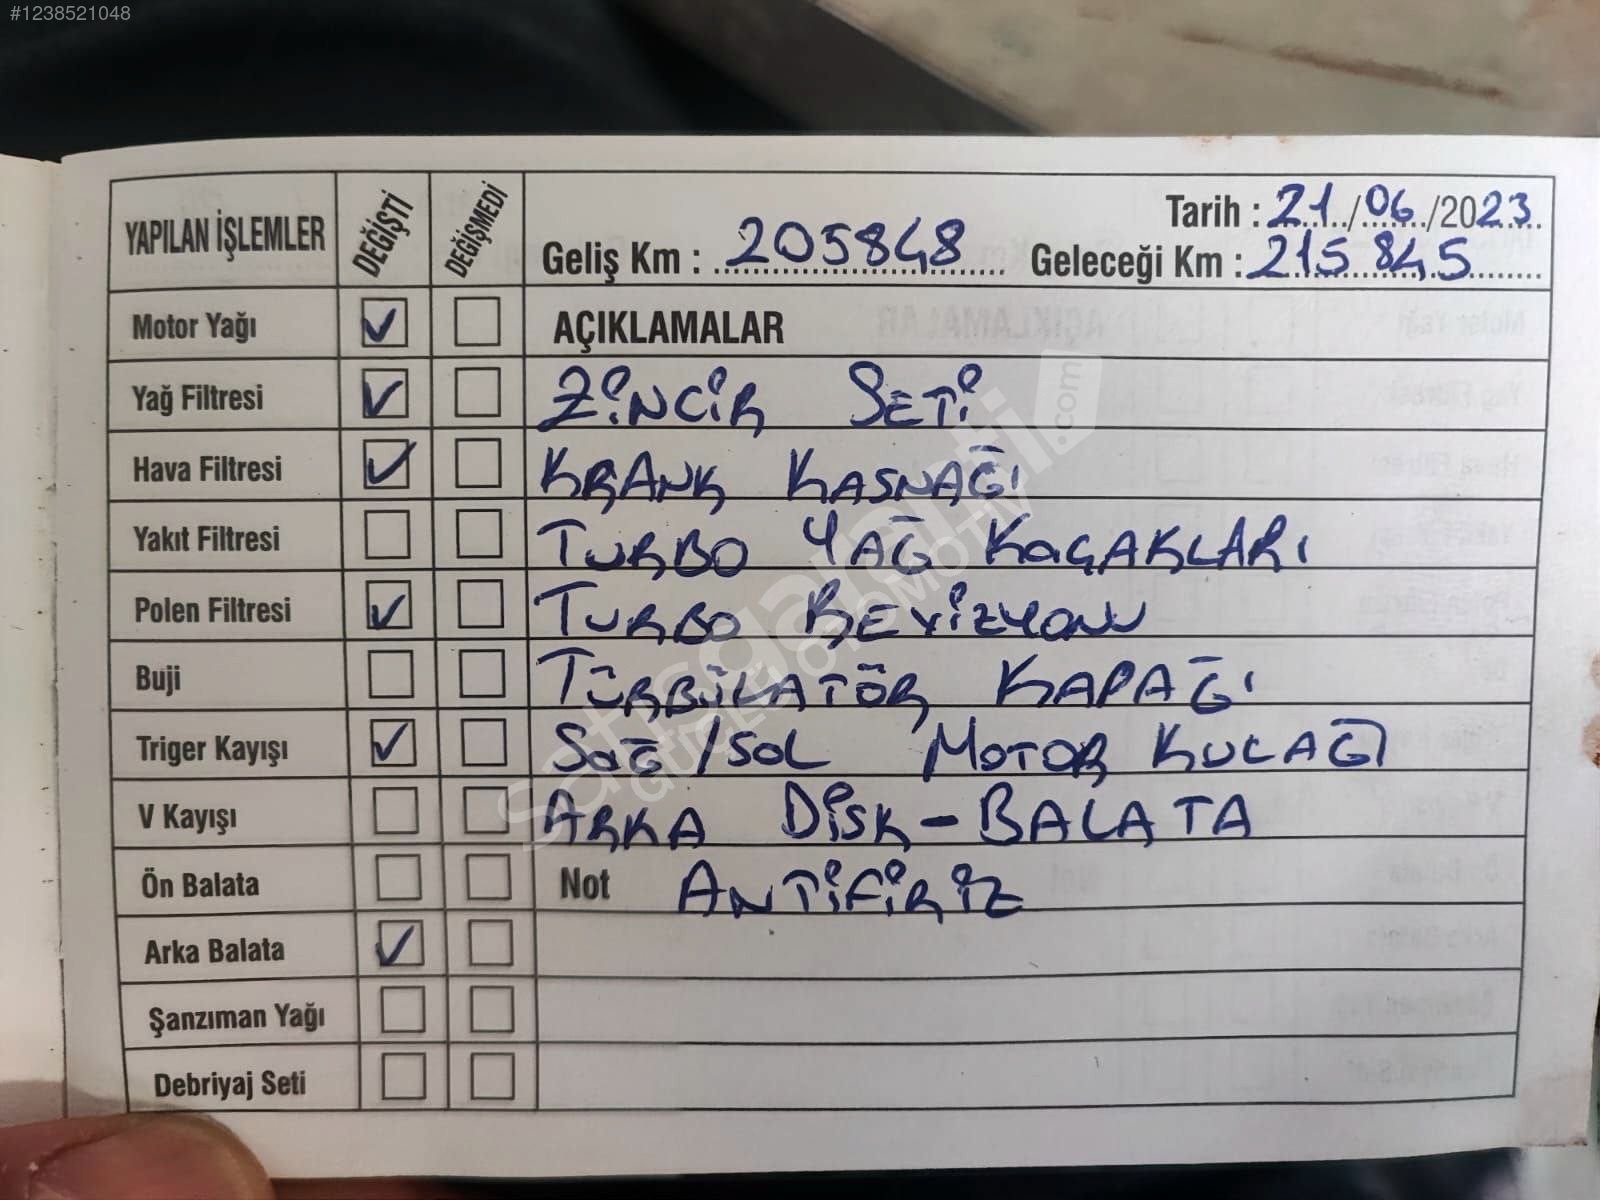 #1238521048
YAPILAN İŞLEMLER DEĞİŞTİ DEĞİŞMEDİ
Tarih : 21/06/2023
Geliş Km : 205848 Geleceği Km : 215845
Motor Yağı ✓ AÇIKLAMALAR
Yağ Filtresi ✓ ZİNCİR SETİ
Hava Filtresi ✓ KRANK KASNAĞI
Yakıt Filtresi TURBO YAĞ KAÇAKLARI
Polen Filtresi ✓ TURBO REVİZYONU
Buji TÜRBÜLATÖR KAPAĞI
Triger Kayışı ✓ SAĞ/SOL MOTOR KULAĞI
V Kayışı ARKA DİSK-BALATA
Ön Balata Not ANTİFİRİZ
Arka Balata ✓
Şanzıman Yağı
Debriyaj Seti
satisgalati.com
GÜÇLÜ OTOMOTİV